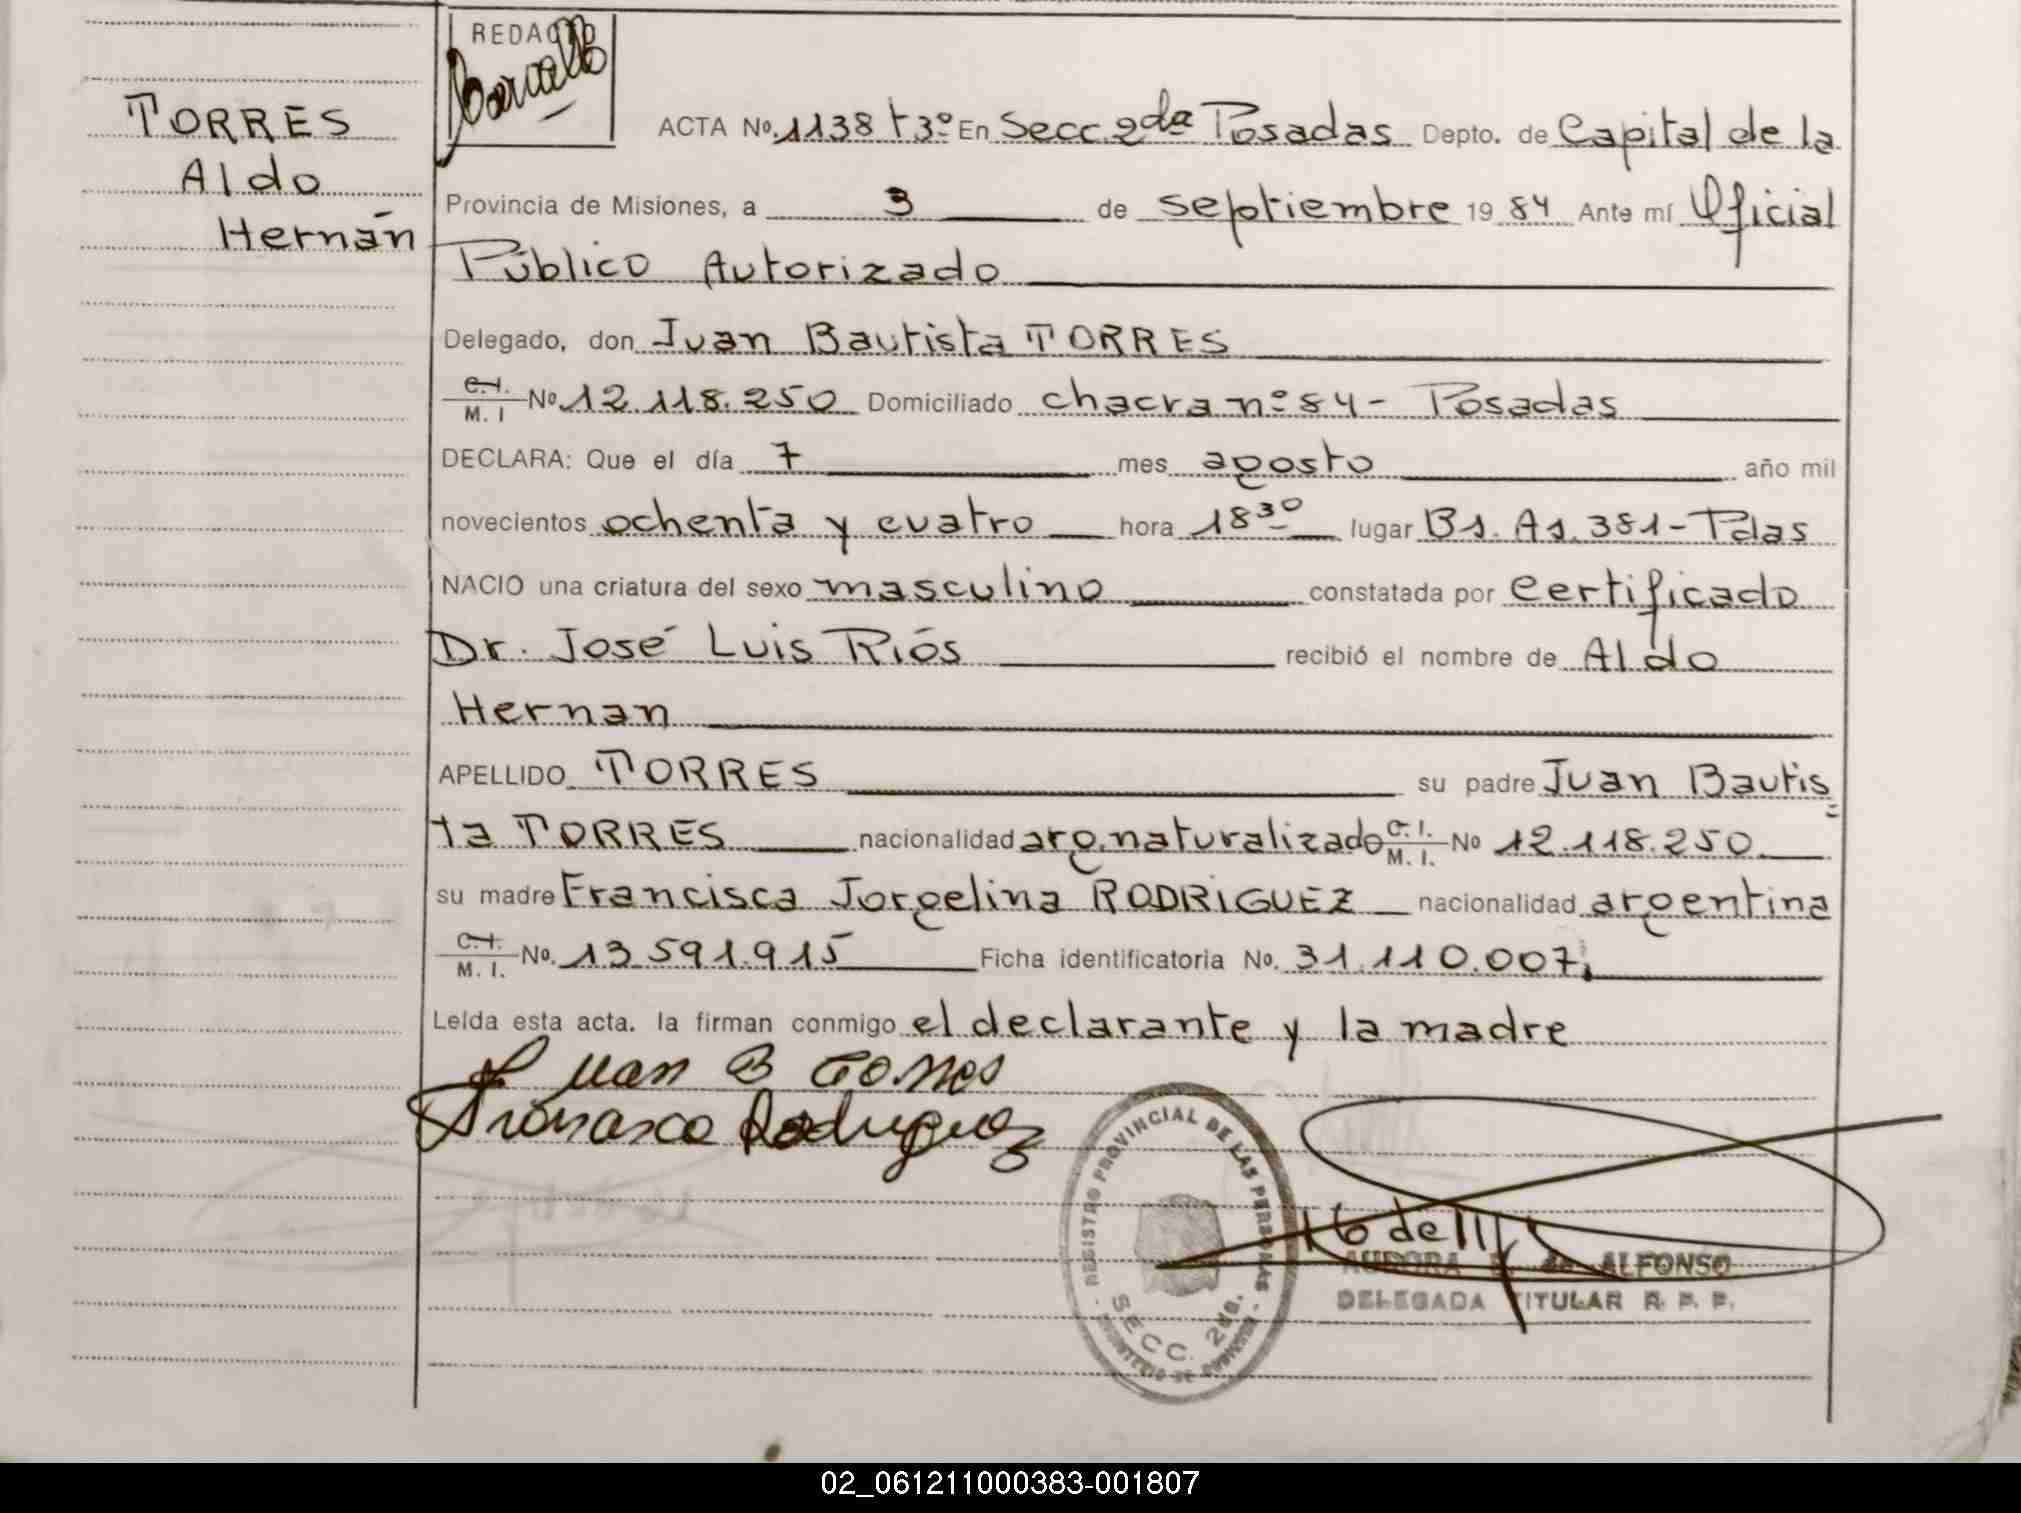 REDACTO
TORRES
Aldo
Hernán
ACTA No. 1138 t 3º En Secc. 2da Posadas Depto. de Capital de la
Provincia de Misiones, a 3 de septiembre 1984 Ante mí Oficial
Público Autorizado
Delegado, don Juan Bautista TORRES
C.I. / M. I No. 12.118.250 Domiciliado chacra nº 84 - Posadas
DECLARA: Que el día 7 mes agosto año mil
novecientos ochenta y cuatro hora 18 30 lugar Bs. As. 381 - Pdas
NACIO una criatura del sexo masculino constatada por certificado
Dr. José Luis Ríos recibió el nombre de Aldo
Hernan
APELLIDO TORRES su padre Juan Bautis
ta TORRES nacionalidad arg. naturalizado C.I. / M. I. No 12.118.250
su madre Francisca Jorgelina RODRIGUEZ nacionalidad argentina
C.I. / M. I. No. 13.591.915 Ficha identificatoria No. 31.110.007
Leída esta acta. la firman conmigo el declarante y la madre
Juan B Torres
Francisca Rodriguez
REGISTRO PROVINCIAL DE LAS PERSONAS
SECC. 2da.
AURORA de ALFONSO
DELEGADA TITULAR R. P. P.
02_061211000383-001807